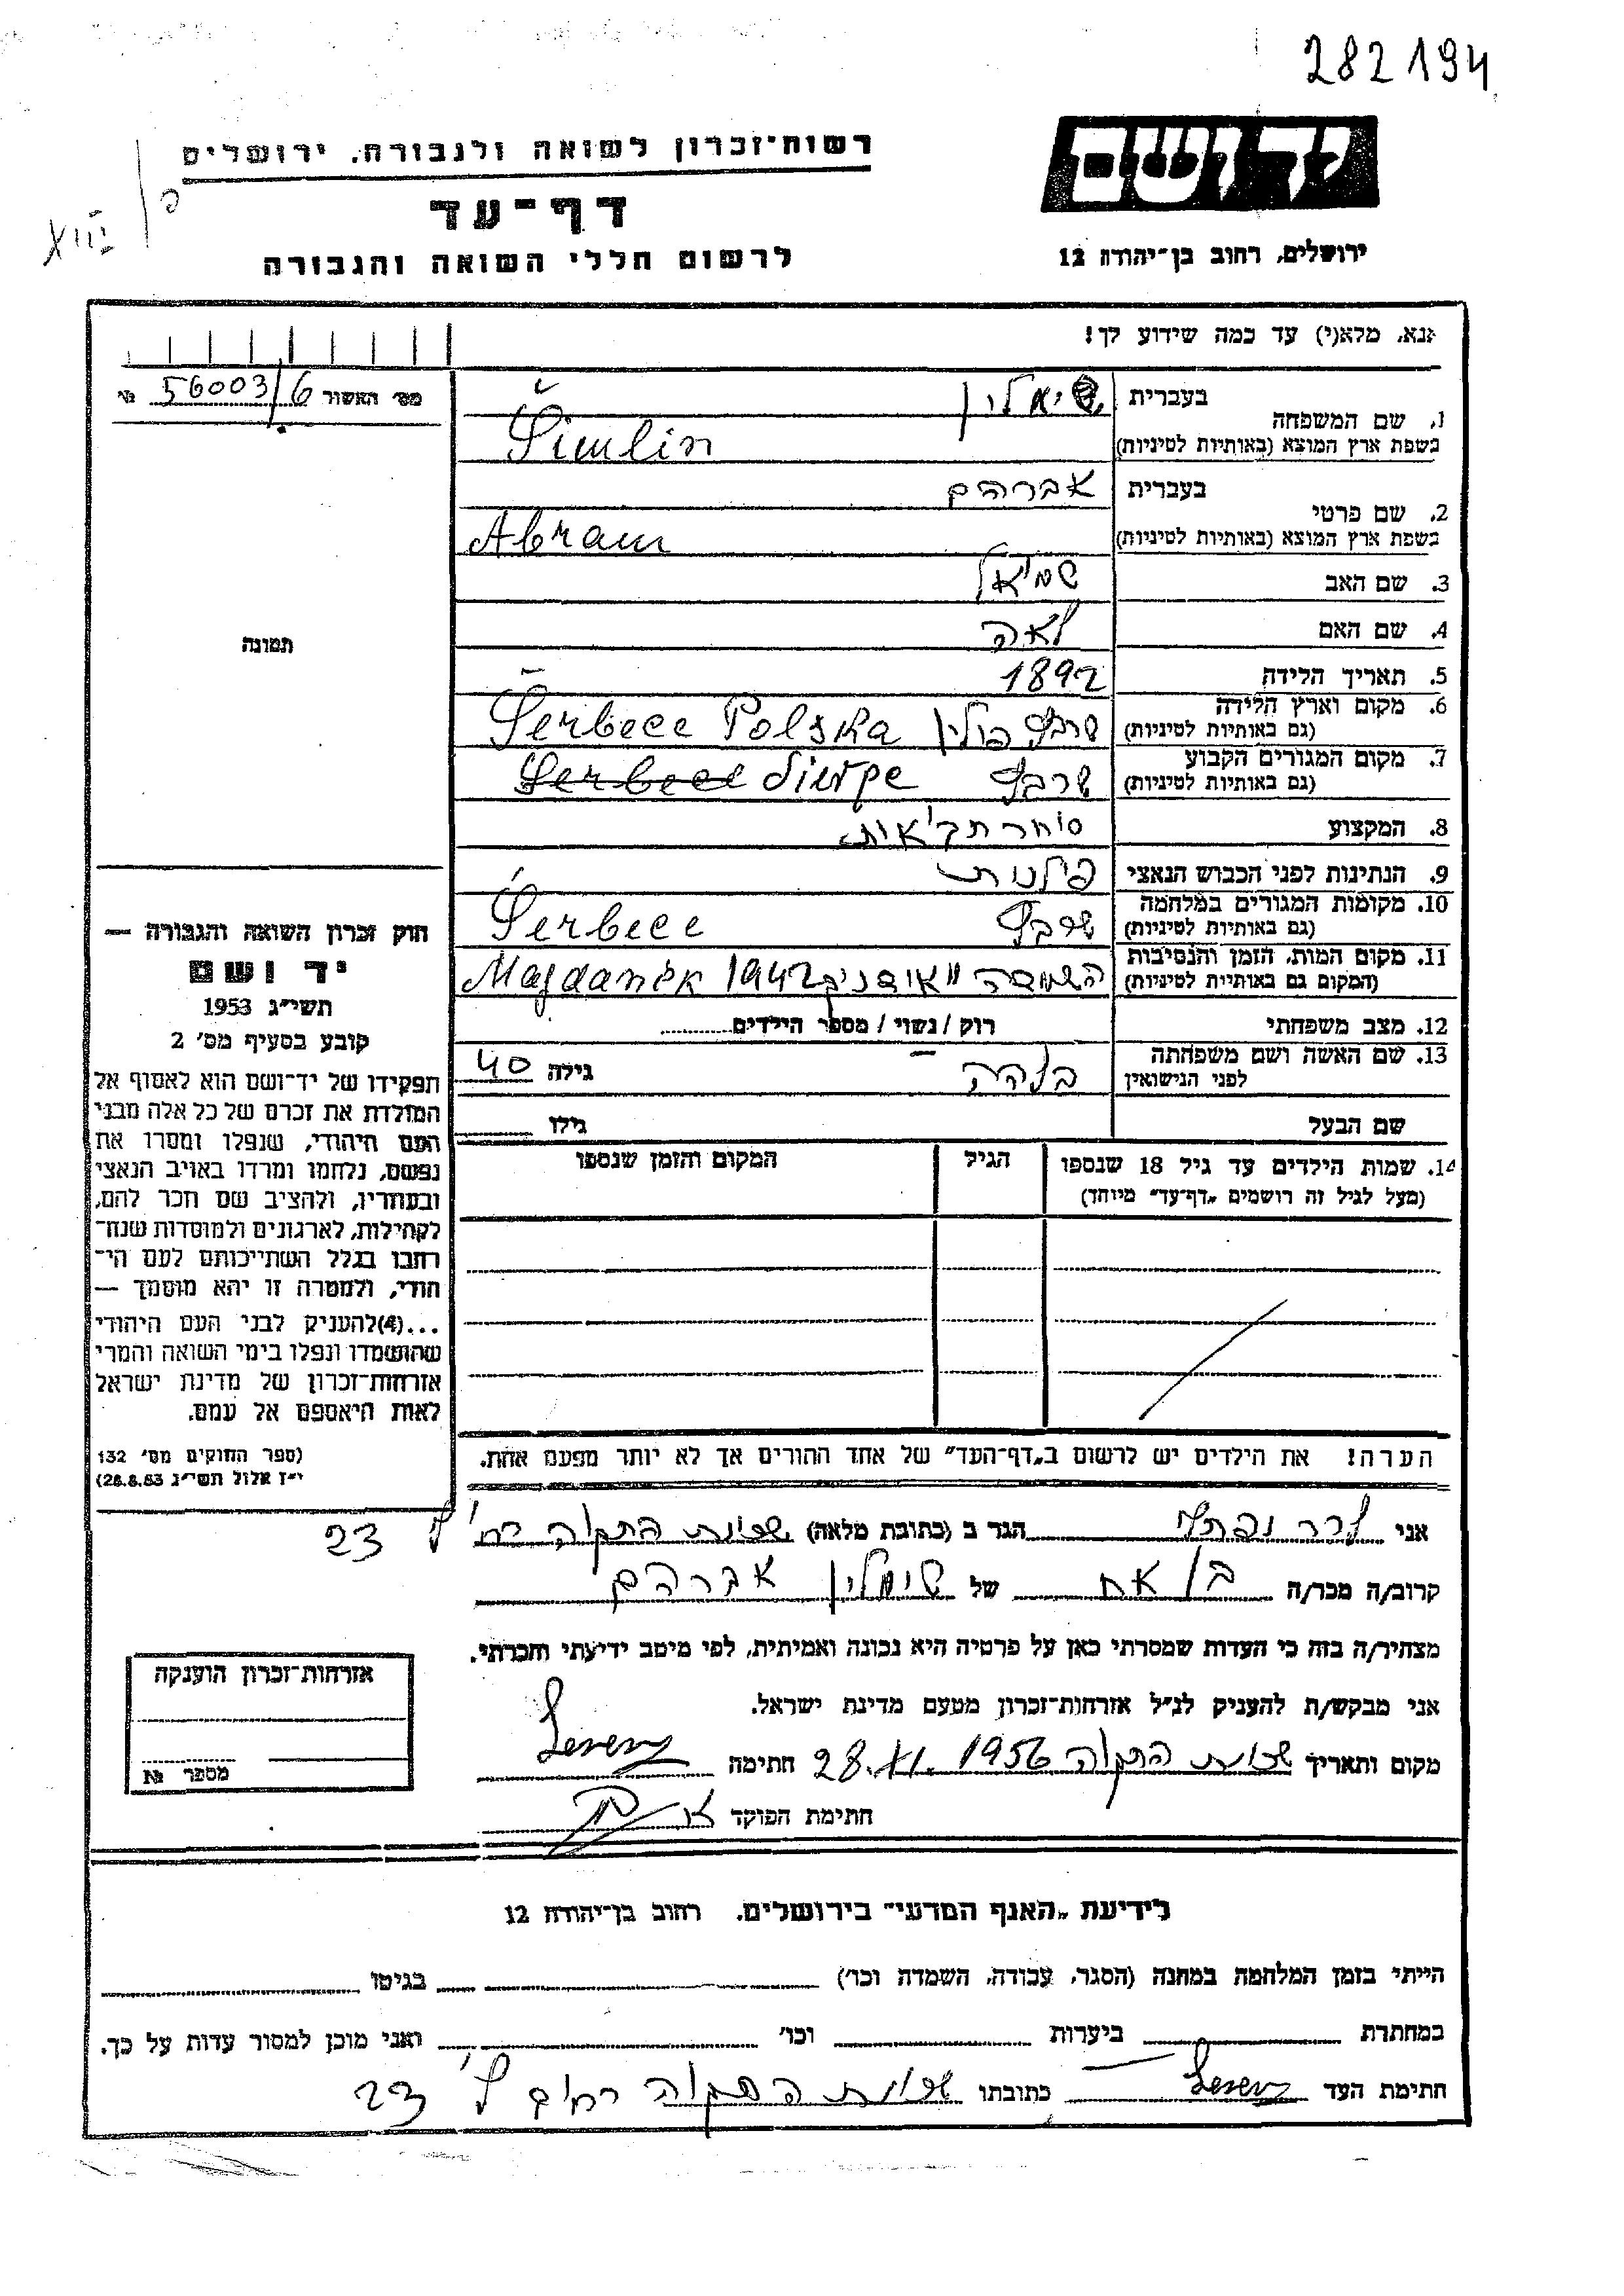 282194
יד ושם
רשות־זכרון לשואה ולגבורה, ירושלים
דף־עד
לרשום חללי השואה והגבורה
ירושלים, רחוב בן־יהודה 12
XIII
אנא, מלא(י) עד כמה שידוע לך!
מס׳ האשור 56003/6 №
תמונה
1. שם המשפחה
בעברית
בשפת ארץ המוצא (באותיות לטיניות)
Šimlin
2. שם פרטי
בעברית אברהם
בשפת ארץ המוצא (באותיות לטיניות)
Abram
3. שם האב
4. שם האם לאה
5. תאריך הלידה 1892
6. מקום וארץ הלידה
(גם באותיות לטיניות) פולין Serbece Polska
7. מקום המגורים הקבוע
(גם באותיות לטיניות) Sierpe
8. המקצוע סוחר תבואות
9. הנתינות לפני הכבוש הנאצי
10. מקומות המגורים במלחמה
(גם באותיות לטיניות) Serbece
11. מקום המות, הזמן והנסיבות
(המקום גם באותיות לטיניות) 1942 Majdanek
12. מצב משפחתי רוק / נשוי / מספר הילדים
13. שם האשה ושם משפחתה
לפני הנישואין
גילה 40
שם הבעל גילו
14. שמות הילדים עד גיל 18 שנספו
(מעל לגיל זה רושמים „דף־עד״ מיוחד)
הגיל
המקום והזמן שנספו
הערה! את הילדים יש לרשום ב„דף־העד״ של אחד ההורים אך לא יותר מפעם אחת.
חוק זכרון השואה והגבורה —
יד ושם
תשי״ג 1953
קובע בסעיף מס׳ 2
תפקידו של יד־ושם הוא לאסוף אל
המולדת את זכרם של כל אלה מבני
העם היהודי, שנפלו ומסרו את
נפשם, נלחמו ומרדו באויב הנאצי
ובעוזריו, ולהציב שם וזכר להם,
לקהילות, לארגונים ולמוסדות שנח־
רבו בגלל השתייכותם לעם הי־
הודי, ולמטרה זו יהא מוסמך —
...(4)להעניק לבני העם היהודי
שהושמדו ונפלו בימי השואה והמרי
אזרחות־זכרון של מדינת ישראל
לאות היאספם אל עמם.
(ספר החוקים מס׳ 132
י״ז אלול תשי״ג 28.8.53)
אני הגר ב (כתובת מלאה) שכונת התקוה רח׳ 23
קרוב/ה מכר/ה בן אח של שימלין אברהם
מצהיר/ה בזה כי העדות שמסרתי כאן על פרטיה היא נכונה ואמיתית, לפי מיטב ידיעתי והכרתי.
אני מבקש/ת להעניק לנ״ל אזרחות־זכרון מטעם מדינת ישראל.
מקום ותאריך שכונת התקוה 28.XI.1956 חתימה
חתימת הפוקד
אזרחות־זכרון הוענקה
מספר №
לידיעת „האגף המדעי״ בירושלים, רחוב בן־יהודה 12
הייתי בזמן המלחמה במחנה (הסגר, עבודה, השמדה וכו׳) בגיטו
במחתרת ביערות וכו׳ ואני מוכן למסור עדות על כך.
חתימת העד כתובתו שכונת התקוה רחוב 23